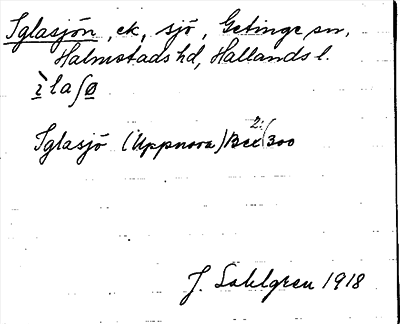 Iglasjön, ek, sjö, Getinge sn,
Halmstads hd, Hallands l.
ì la ʃ ø
Iglasjö (Uppnora) 300
J. Sahlgren 1918